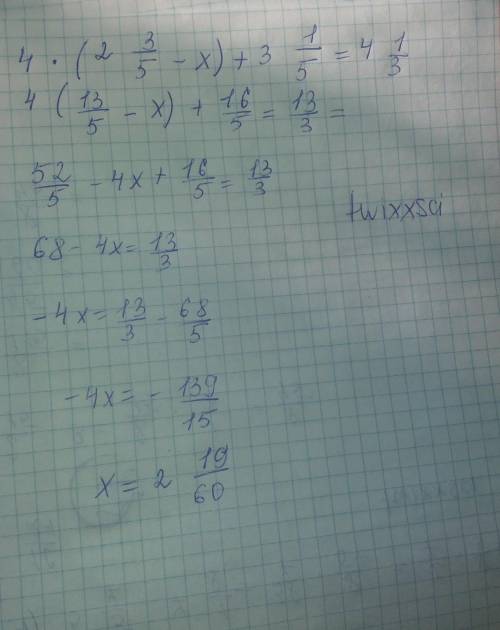 4 · (2 3/5 - x) + 3 1/5 = 4 1/3
4 (13/5 - x) + 16/5 = 13/3 =
52/5 - 4x + 16/5 = 13/3
twixxsci
68 - 4x = 13/3
-4x = 13/3 - 68/5
-4x = - 139/15
x = 2 19/60